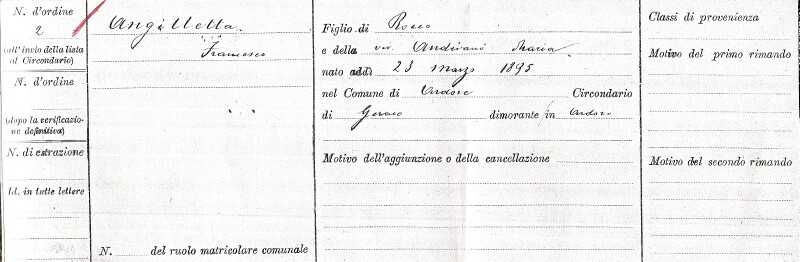 N. d'ordine
2
(all'invio della lista
al Circondario)
N. d'ordine
(dopo la verificazio-
ne definitiva)
N. di estrazione
Id. in tutte lettere
Angilletta
Francesco
N. del ruolo matricolare comunale
Figlio di Rocco
e della viv. Andiranò Maria
nato addì 23 Marzo 1895
nel Comune di Ardore Circondario
di Gerace dimorante in Ardore
Motivo dell'aggiunzione o della cancellazione
Classi di provenienza
Motivo del primo rimando
Motivo del secondo rimando